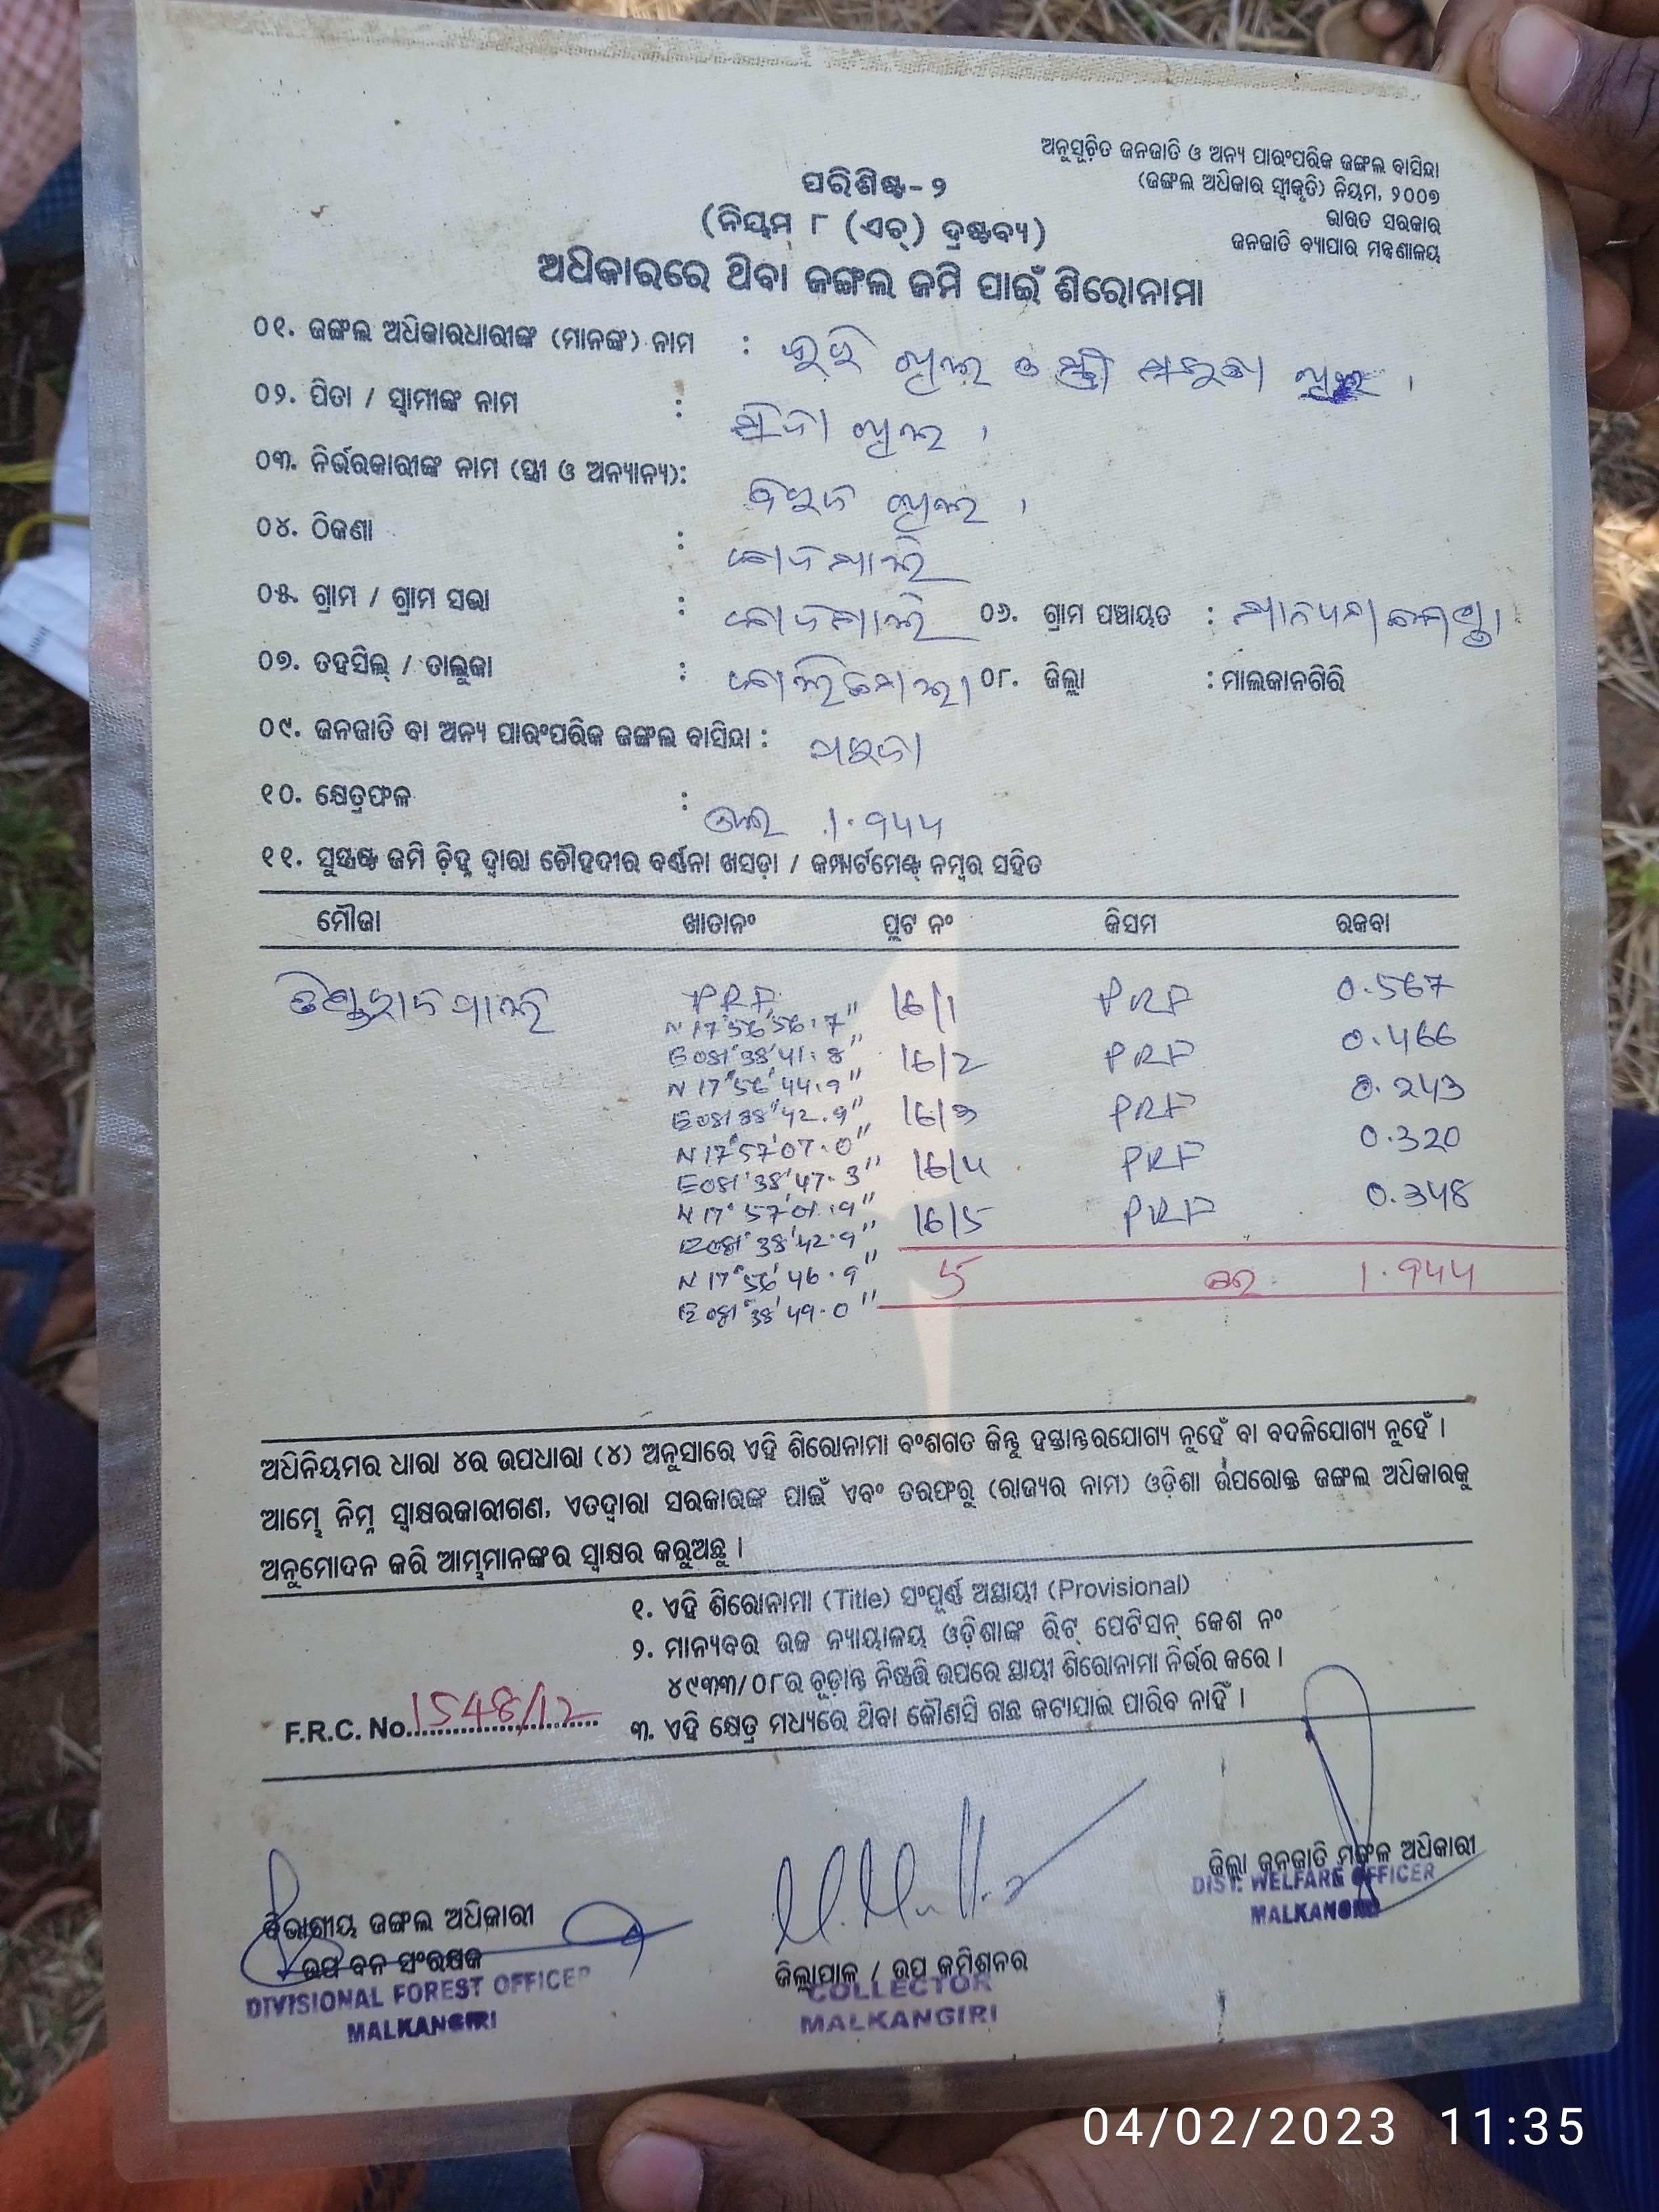 ଅନୁସୂଚିତ ଜନଜାତି ଓ ଅନ୍ୟ ପାରଂପରିକ ଜଙ୍ଗଲ ବାସିନ୍ଦା
(ଜଙ୍ଗଲ ଅଧିକାର ସ୍ୱୀକୃତି) ନିୟମ, ୨୦୦୭
ଭାରତ ସରକାର
ଜନଜାତି ବ୍ୟାପାର ମନ୍ତ୍ରଣାଳୟ
ପରିଶିଷ୍ଟ-୨
(ନିୟମ ୮ (ଏଚ୍) ଦ୍ରଷ୍ଟବ୍ୟ)
ଅଧିକାରରେ ଥିବା ଜଙ୍ଗଲ ଜମି ପାଇଁ ଶିରୋନାମା
୦୧. ଜଙ୍ଗଲ ଅଧିକାରଧାରୀଙ୍କ (ମାନଙ୍କ) ନାମ :
୦୨. ପିତା / ସ୍ୱାମୀଙ୍କ ନାମ :
୦୩. ନିର୍ଭରକାରୀଙ୍କ ନାମ (ସ୍ତ୍ରୀ ଓ ଅନ୍ୟାନ୍ୟ):
୦୪. ଠିକଣା :
୦୫. ଗ୍ରାମ / ଗ୍ରାମ ସଭା : ୦୬. ଗ୍ରାମ ପଞ୍ଚାୟତ :
୦୭. ତହସିଲ୍ / ତାଲୁକା : ୦୮. ଜିଲ୍ଲା : ମାଲକାନଗିରି
୦୯. ଜନଜାତି ବା ଅନ୍ୟ ପାରଂପରିକ ଜଙ୍ଗଲ ବାସିନ୍ଦା :
୧୦. କ୍ଷେତ୍ରଫଳ : 1.944
୧୧. ସୁସ୍ପଷ୍ଟ ଜମି ଚିହ୍ନ ଦ୍ୱାରା ଚୌହଦୀର ବର୍ଣ୍ଣନା ଖସଡ଼ା / କମ୍ପାର୍ଟମେଣ୍ଟ୍ ନମ୍ବର ସହିତ
ମୌଜା ଖାତାନଂ ପ୍ଲଟ ନଂ କିସମ ରକବା
PRF 16/1 PRF 0.567
N 17°56'56.7"
E 081°38'41.8" 16/2 PRF 0.466
N 17°56'44.9"
E 081°38'42.9" 16/3 PRF 0.243
N 17°57'07.0"
E 081°38'47.3" 16/4 PRF 0.320
N 17°57'01.9"
E 081°38'42.9" 16/5 PRF 0.348
N 17°56'46.9" 5 1.944
E 081°38'49.0"
ଅଧିନିୟମର ଧାରା ୪ର ଉପଧାରା (୪) ଅନୁସାରେ ଏହି ଶିରୋନାମା ବଂଶଗତ କିନ୍ତୁ ହସ୍ତାନ୍ତରଯୋଗ୍ୟ ନୁହେଁ ବା ବଦଳିଯୋଗ୍ୟ ନୁହେଁ ।
ଆମ୍ଭେ ନିମ୍ନ ସ୍ୱାକ୍ଷରକାରୀଗଣ, ଏତଦ୍ୱାରା ସରକାରଙ୍କ ପାଇଁ ଏବଂ ତରଫରୁ (ରାଜ୍ୟର ନାମ) ଓଡ଼ିଶା ଉପରୋକ୍ତ ଜଙ୍ଗଲ ଅଧିକାରକୁ
ଅନୁମୋଦନ କରି ଆମ୍ଭମାନଙ୍କର ସ୍ୱାକ୍ଷର କରୁଅଛୁ ।
୧. ଏହି ଶିରୋନାମା (Title) ସଂପୂର୍ଣ୍ଣ ଅସ୍ଥାୟୀ (Provisional)
୨. ମାନ୍ୟବର ଉଚ୍ଚ ନ୍ୟାୟାଳୟ ଓଡ଼ିଶାଙ୍କ ରିଟ୍ ପେଟିସନ୍ କେଶ ନଂ
୪୯୩୩/୦୮ର ଚୂଡ଼ାନ୍ତ ନିଷ୍ପତ୍ତି ଉପରେ ସ୍ଥାୟୀ ଶିରୋନାମା ନିର୍ଭର କରେ ।
୩. ଏହି କ୍ଷେତ୍ର ମଧ୍ୟରେ ଥିବା କୌଣସି ଗଛ କଟାଯାଇ ପାରିବ ନାହିଁ ।
F.R.C. No. 1548/12
ଜିଲ୍ଲା ଜନଜାତି ମଙ୍ଗଳ ଅଧିକାରୀ
DIST. WELFARE OFFICER
MALKANGIRI
ବିଭାଗୀୟ ଜଙ୍ଗଲ ଅଧିକାରୀ
ଉପ ବନ ସଂରକ୍ଷକ
DIVISIONAL FOREST OFFICER
MALKANGIRI
ଜିଲ୍ଲାପାଳ / ଉପ କମିଶନର
COLLECTOR
MALKANGIRI
04/02/2023 11:35